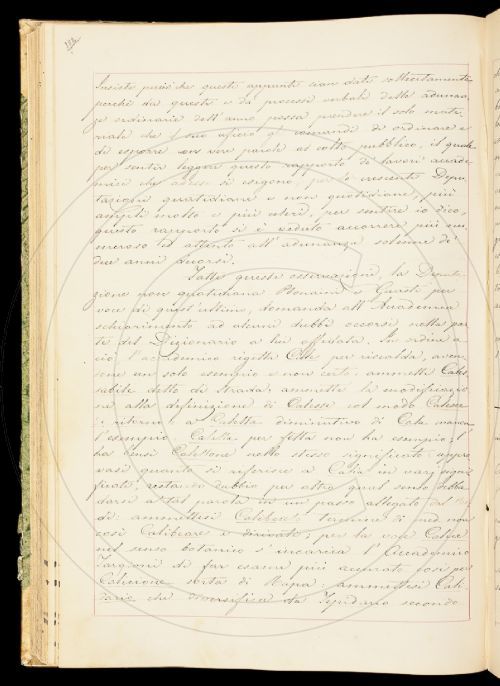 Insiste perché questi appunti sian dati sollecitamente
perché da questi e da processi verbali delle adunan-
ze ordinarie dell'anno possa prendere il solo mate-
riale che il suo ufizio gl' comanda di ordinare e
di esporre con vive parole al colto pubblico, il quale
per sentir leggere questo rapporto di lavori accade-
mici che adesso si esigono, per la crescente Depu-
tazione quotidiana e non quotidiana, più
ampli molto e più estesi, per sentire io dico,
questo rapporto si è veduto accorrere più nu-
meroso ed attento all'adunanza solenne di
due anni decorsi.
Fatte queste osservazioni, la Deputa-
zione non quotidiana Bonaini e Guasti per
voce di quest'ultimo, domanda all'Accademia
schiarimento ad alcuni dubbi occorsi nella par-
te del Dizionario a lei affidata. In ordine a
ciò l'accademico rigetta per riscalda, aven-
done un solo esempio e non certo: ammette Cales-
sabile detto di strada: ammette la modificazio-
ne alla definizione di Calesse sol modo Calesse
di ritorno: a Caletta diminutivo di Cala manca
l'esempio Calìa per fetta non ha esempio; l'
ha bensì nello stesso significato: appro-
vasi quanto si riferisce a Calìa in vari signi-
ficati, restando dubbio per altro qual senso debba
darsi a tal parola in un passo allegato dal
di: ammettesi termine di med. non
così e derivati; per la voce Calice
nel senso botanico s'incarica l'Accademico
Targioni di far esame più accurato così per
sorta di Rapa: ammettesi Cali-
dario che diversifica da Tepidario secondo